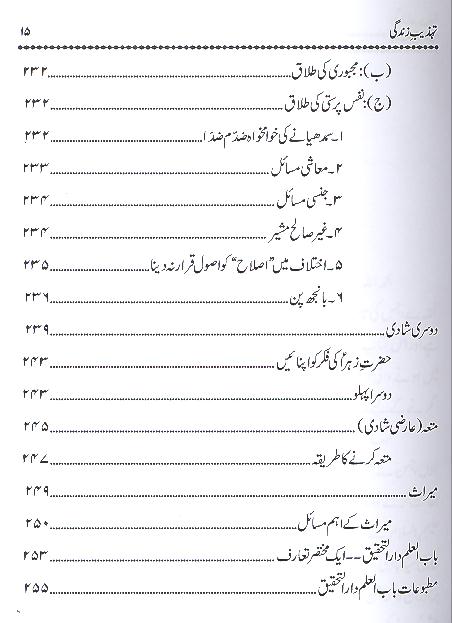 تہذیبِ زندگی ۱۵
(ب): مجبوری کی طلاق ۲۳۲
(ج): نفس پرستی کی طلاق ۲۳۲
۱۔ سمدھیانے کی خوامخواہ ضدّم ضدّا ۲۳۲
۲۔ معاشی مسائل ۲۳۳
۳۔ جنسی مسائل ۲۳۴
۴۔ غیر صالح مشیر ۲۳۴
۵۔ اختلاف میں "اصلاح" کو اصول قرار نہ دینا ۲۳۵
۶۔ بانجھ پن ۲۳۶
دوسری شادی ۲۳۹
حضرتِ زہراؑ کی فکر کو اپنائیں ۲۴۳
دوسرا پہلو ۲۴۳
متعہ (عارضی شادی) ۲۴۵
متعہ کرنے کا طریقہ ۲۴۷
میراث ۲۴۹
میراث کے اہم مسائل ۲۵۰
باب العلم دارالتحقیق ۔۔ ایک مختصر تعارف ۲۵۳
مطبوعات باب العلم دارالتحقیق ۲۵۵